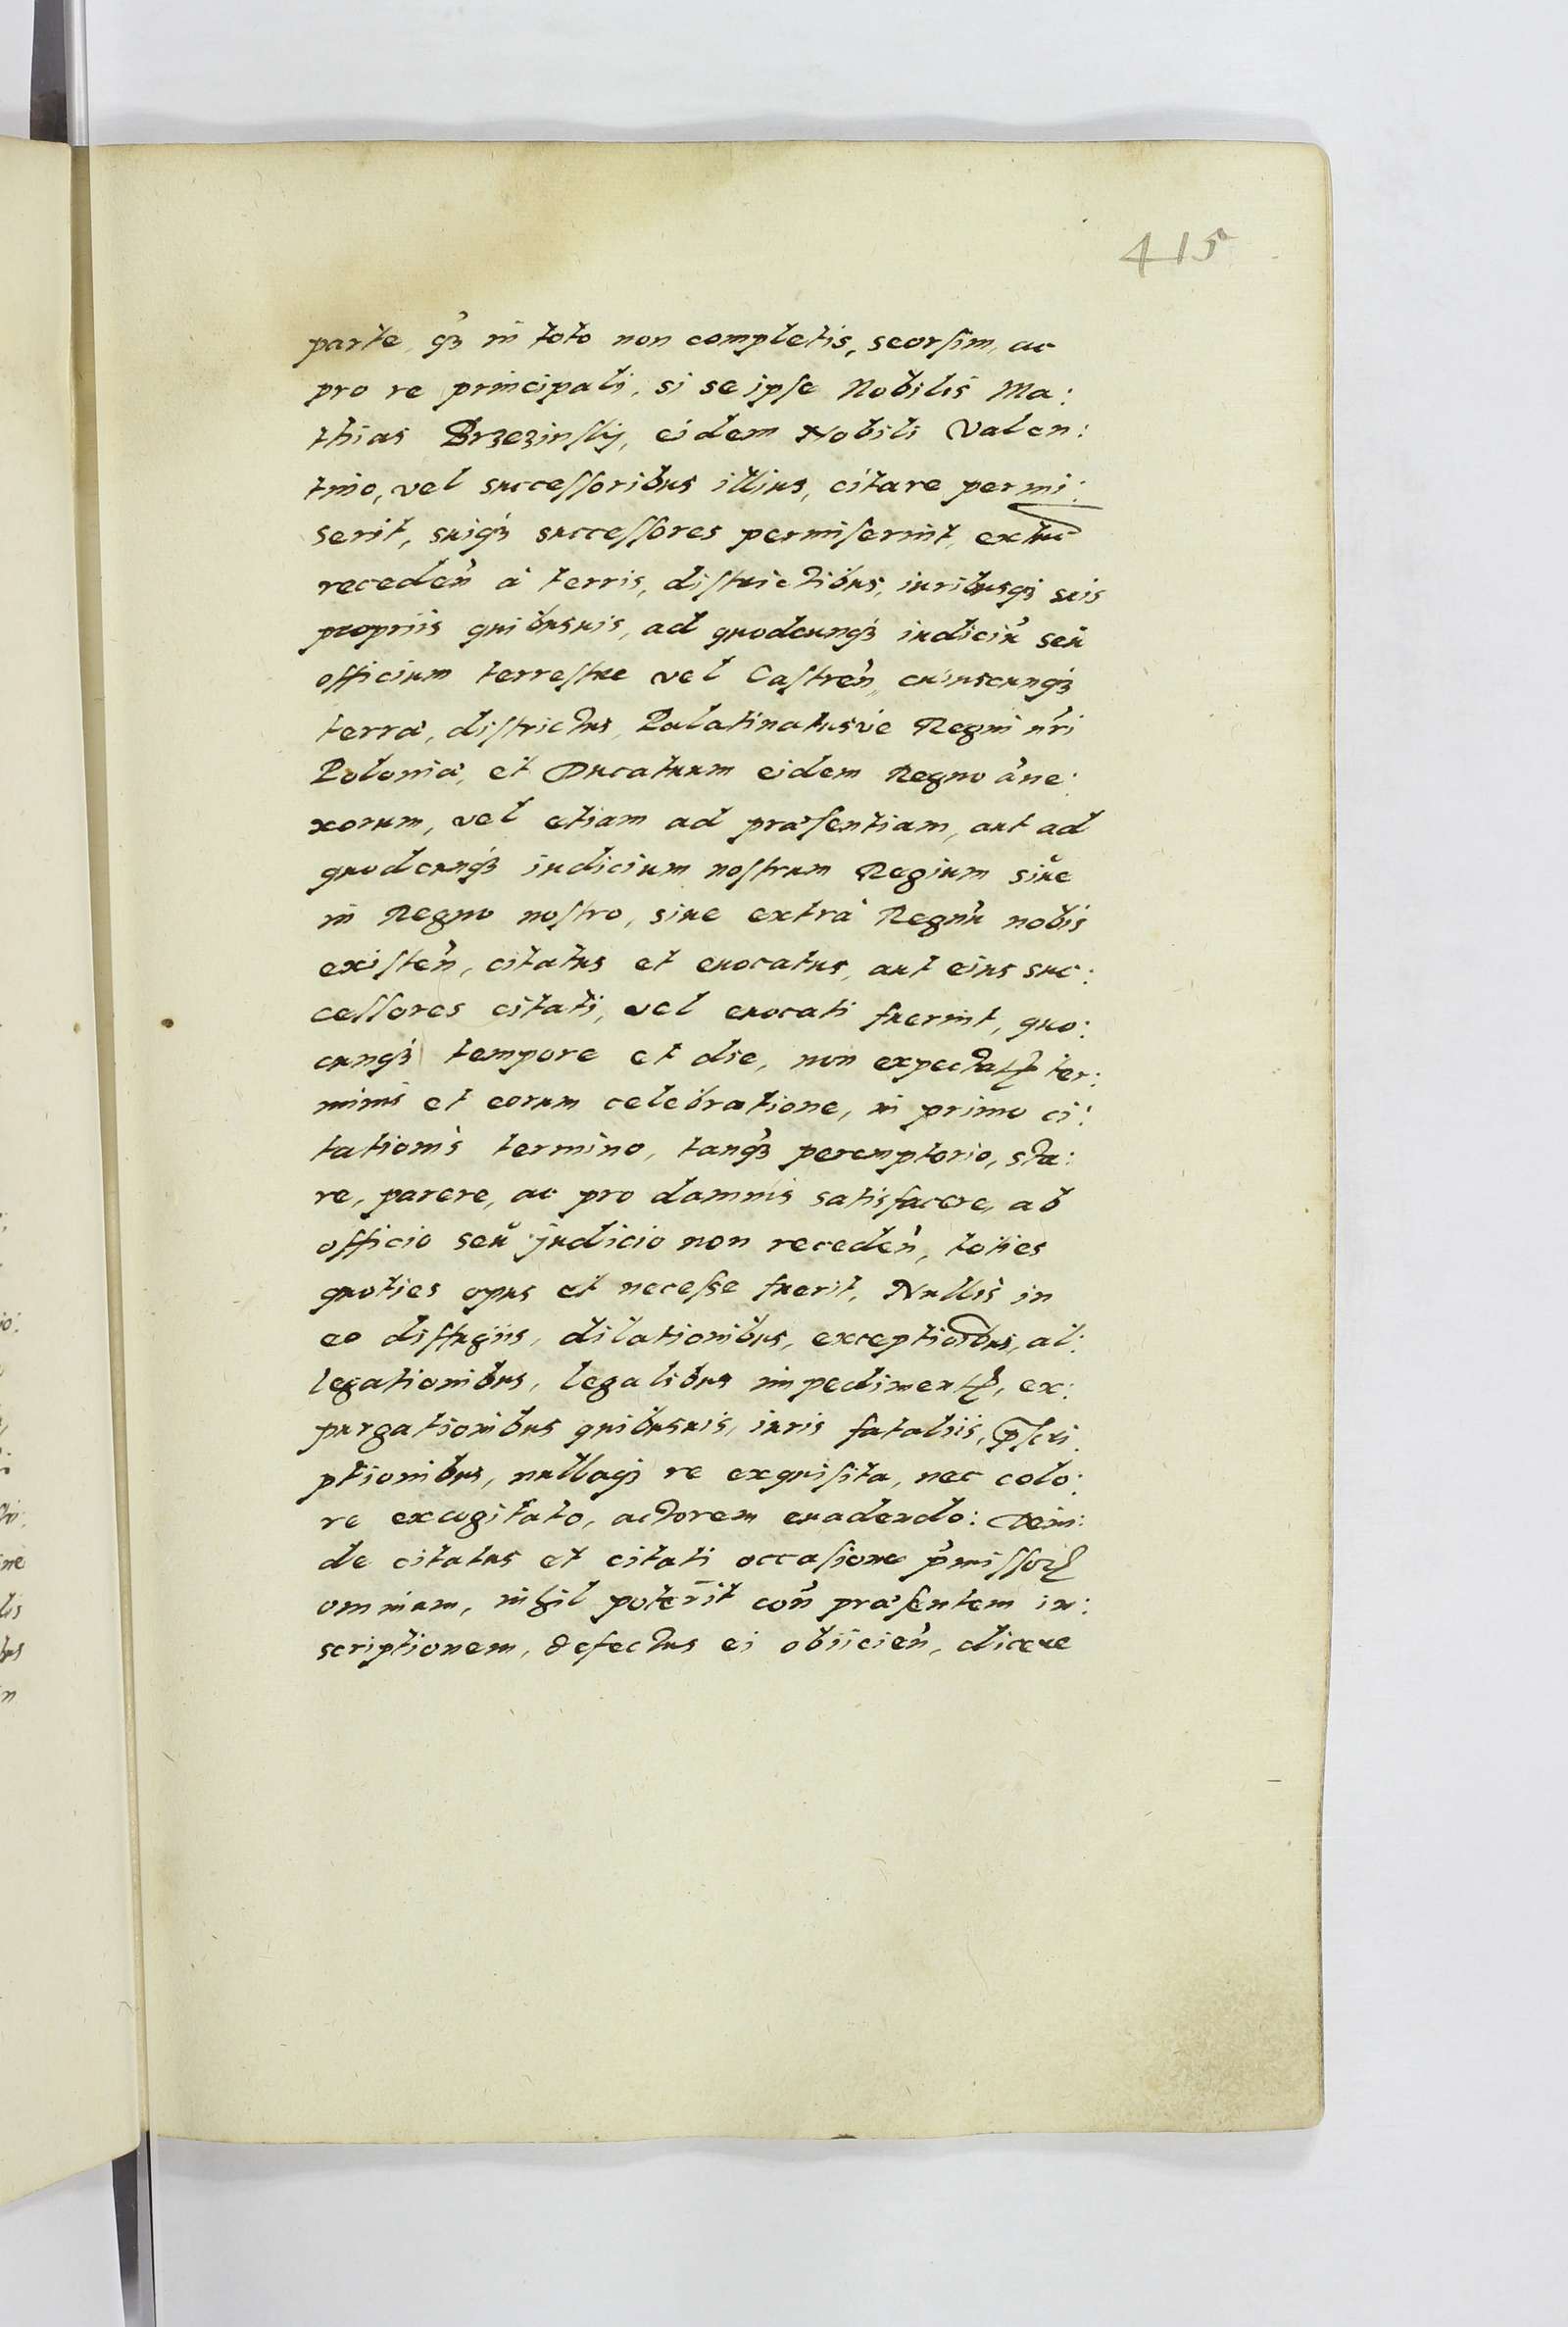 415
parte, qꝫ in toto non completis, seorſim, ac
pro re principali, si se ipſe Nobilis Ma:
thias Brzezinſkÿ, eidem Nobili Valen:
tino, vel succeſſoribus illius, citare permi:
serit, suiqꝫ succeſſores permiſerint, extūc
recedeñ à terris, diſtrictibus, iuribusqꝫ suis
propriis quibusuis, ad quodcunqꝫ iudiciū seu
officium terreſtre vel Caſtreñ, cuiuscunqꝫ
terræ, diſtrictus, Palatinatusue Regni nr̃i
Poloniæ, et Ducatuum eidem Regno añe:
xorum, vel etiam ad præſentiam, aut ad
quodcunqꝫ iudicium noſtrum Regium siue
in Regno noſtro, siue extrà Regnū nobis
exiſteñ, citatus et euocatus, aut eius suc:
ceſſores citati, vel euocati fuerint, quo:
cunqꝫ tempore et die, non expectatꝭ ter:
minis et eorum celebratione, in primo ci:
tationis termino, tanqꝫ peremptorio, sta:
re, parere, ac pro damnis satisfacere, ab
officio seu judicio non recedeñ, toties
quoties opus et neceſse fuerit, Nullis in
eo diffugiis, dilationibus, exceptioībus, al:
legationibus, legalibus impedimentꝭ, ex:
purgationibus quibusuis, iuris fataliis, p̃ſcri
ptionibus, nullaqꝫ re exquiſita, nec colo:
re excogitato, actorem euadendo: Dein:
de citatus et citati occaſione p̃miſſorꝝ
omnium, nihil poterīt coñ præſentem in:
scriptionem, defectus ei obiicieñ, dicere